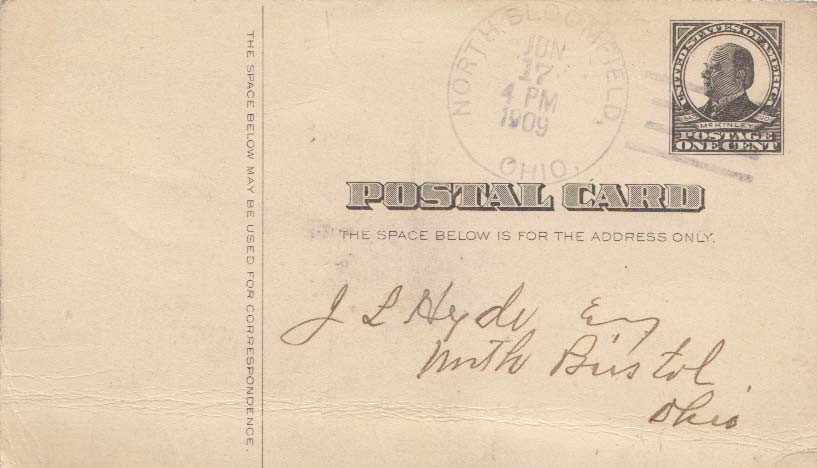 THE SPACE BELOW MAY BE USED FOR CORRESPONDENCE.
NORTH BLOOMFIELD,
JUN
17
4 PM
1909
OHIO.
UNITED STATES OF AMERICA
McKINLEY
POSTAGE
ONE CENT
POSTAL CARD
THE SPACE BELOW IS FOR THE ADDRESS ONLY.
J L Hyde Esq
North Bristol
Ohio